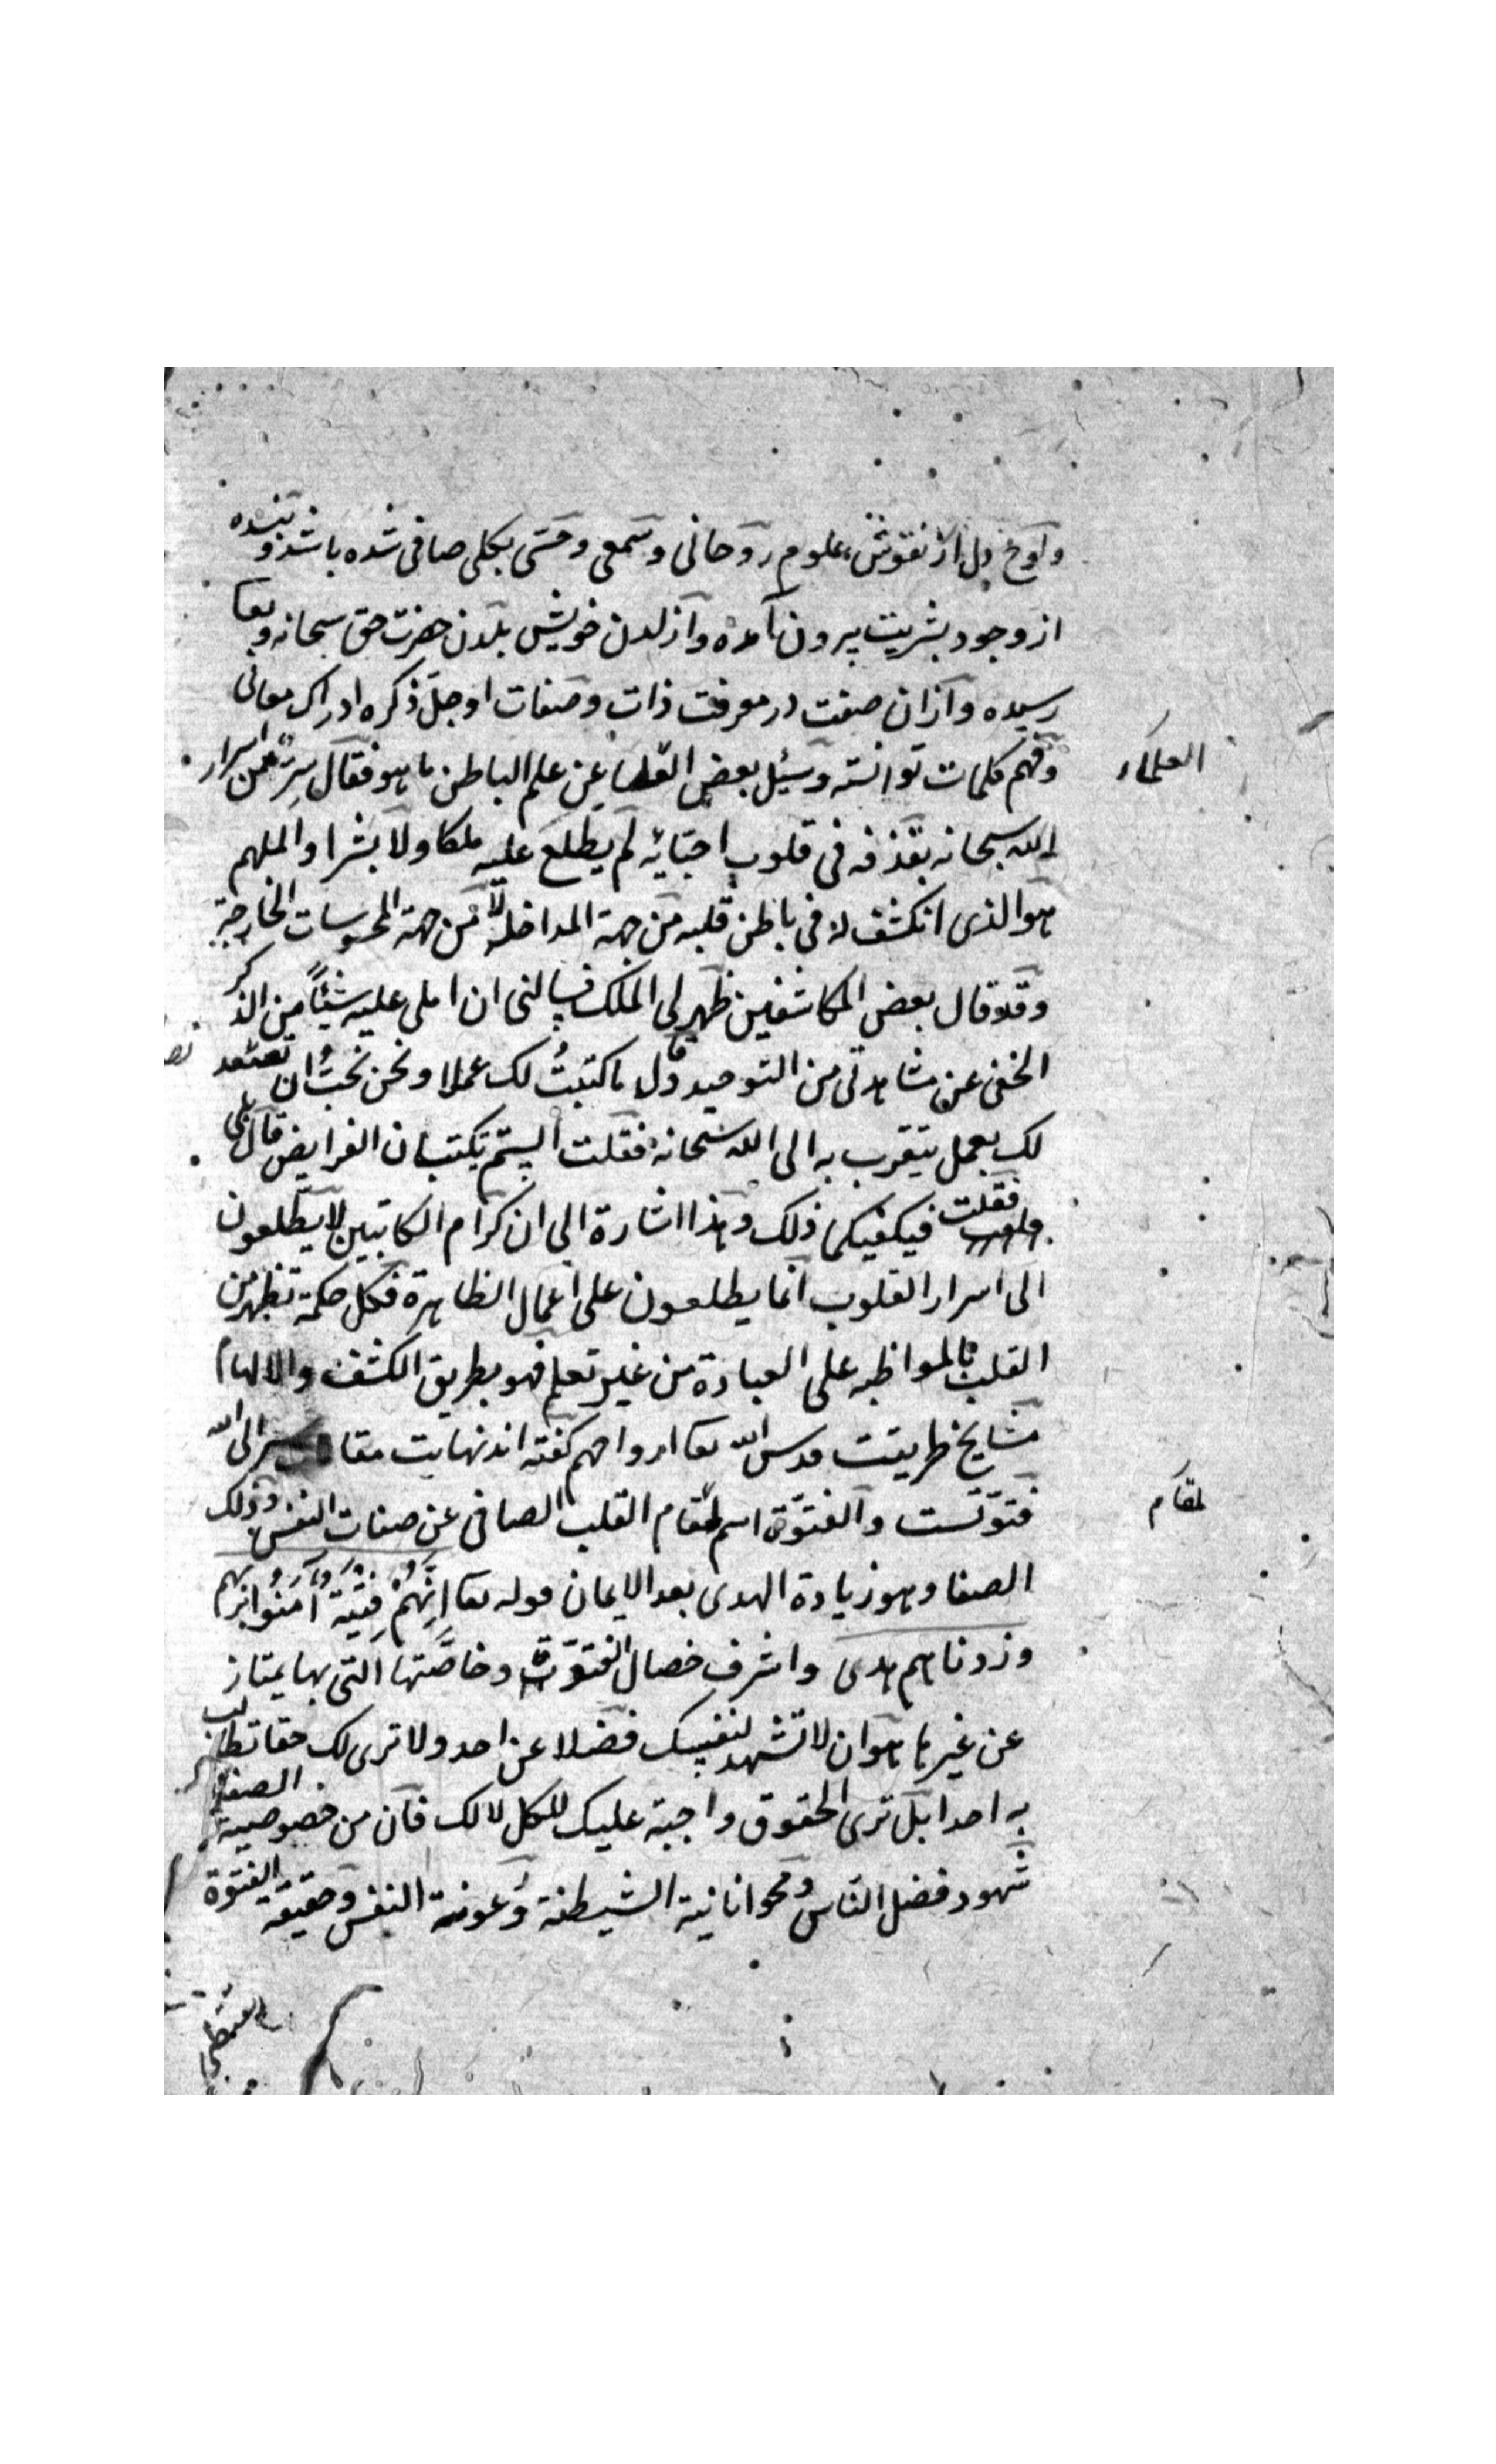 ولوح دل از نقوش علوم روحانی وسمعی وحسی بکلی صافی شده باشد وبنده
از وجود بشریت بیرون آمده واز لدن خویش بلدن حضرت حق سبحانه وتعا
رسیده واز ان صفت در معرفت ذات وصفات او جل ذکره ادراک معانی
وفهم کلمات توانسته وسئیل بعض العلماء عن علم الباطن ما هو فقال سر من اسرار
العلماء
الله سبحانه یقذفه فی قلوب احبائه لم یطلع علیه ملکا ولا بشرا والملهم
هو الذی انکشف له فی باطن قلبه من جهة المداخلة لا من جهة المحسوسات الخارجة
وقد قال بعض المکاشفین ظهر لی الملک فسالنی ان املی علیه شیئاً من الذکر
الخفی عن مشاهدتی من التوحید وقال ما کتبتُ لک عملا ونحن نحبُّ ان نصعد
لک بعمل یتقرب به الی الله سبحانه فقلت الیستم یکتبان الفرایض قال بلی
فقلت فیکفیکما ذلک وهذا اشارة الی ان کرام الکاتبین لا یطلعون
الی اسرار القلوب انما یطلعون علی اعمال الظاهرة فکل حکمة تظهر من
القلب بالمواظبه علی العبادة من غیر تعلم فهو بطریق الکشف والالهام
مشایخ طریقت قدس الله تعا ارواحهم گفته اند نهایت مقا سر الی الله
فتوتست والفتوّة اسم لمقام القلب الصافی عن صفات النفس وذلک
لمقام
الصفا وهو زیادة الهدی بعد الایمان قوله تعا اِنَّهُمْ فِتْیَة آمَنُوا بِرَبِّهِم
وزدناهم هدی واشرف خصال الفتوّة وخاصّتها التی بها یمتاز
عن غیرها هو ان لا تشهد لنفسک فضلا عن احد ولا تری لک حقا تطلب
به احدا بل تری الحقوق واجبة علیک للکل لا لک فان من خصوصیة الصفا
شهود فضل الناس ومحو انانیة الشیطنة ورعونة النفس وحقیقه الفتوة